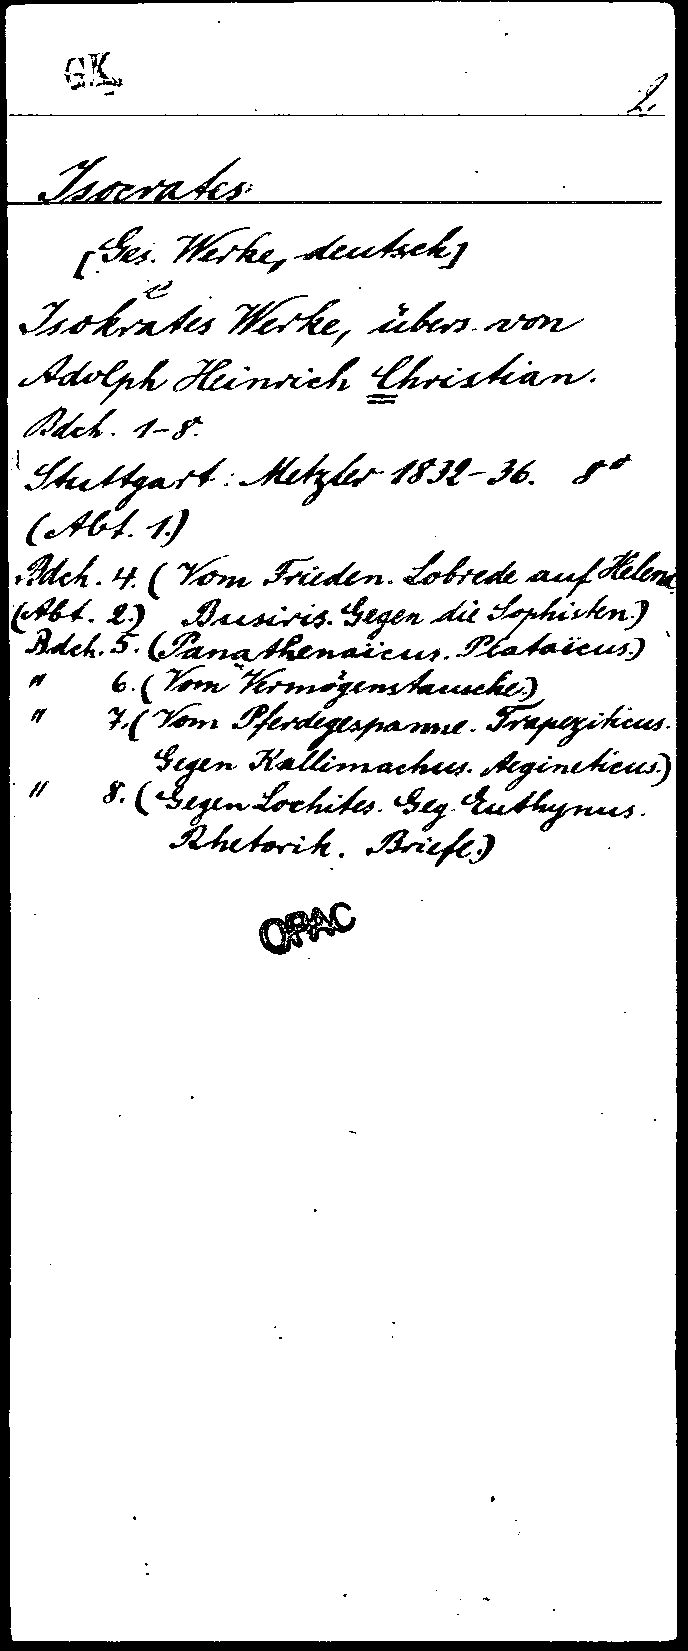 GK
2.
Isocrates
[Ges. Werke, deutsch]
c
Isokrates Werke, übers. von
Adolph Heinrich Christian.
Bdch. 1-8.
Stuttgart: Metzler 1832-36. 8°
(Abt. 1.)
Bdch. 4. (Vom Frieden. Lobrede auf Helena
(Abt. 2.) Busiris. Gegen die Sophisten.)
Bdch. 5. (Panathenaïcus. Plataïcus.)
" 6. (Vom Vermögenstausche.)
" 7. (Vom Pferdegespanne. Trapeziticus.
Gegen Kallimachus. Aegineticus.)
" 8. (Gegen Lochites. Geg. Euthynus.
Rhetorik. Briefe.)
OPAC